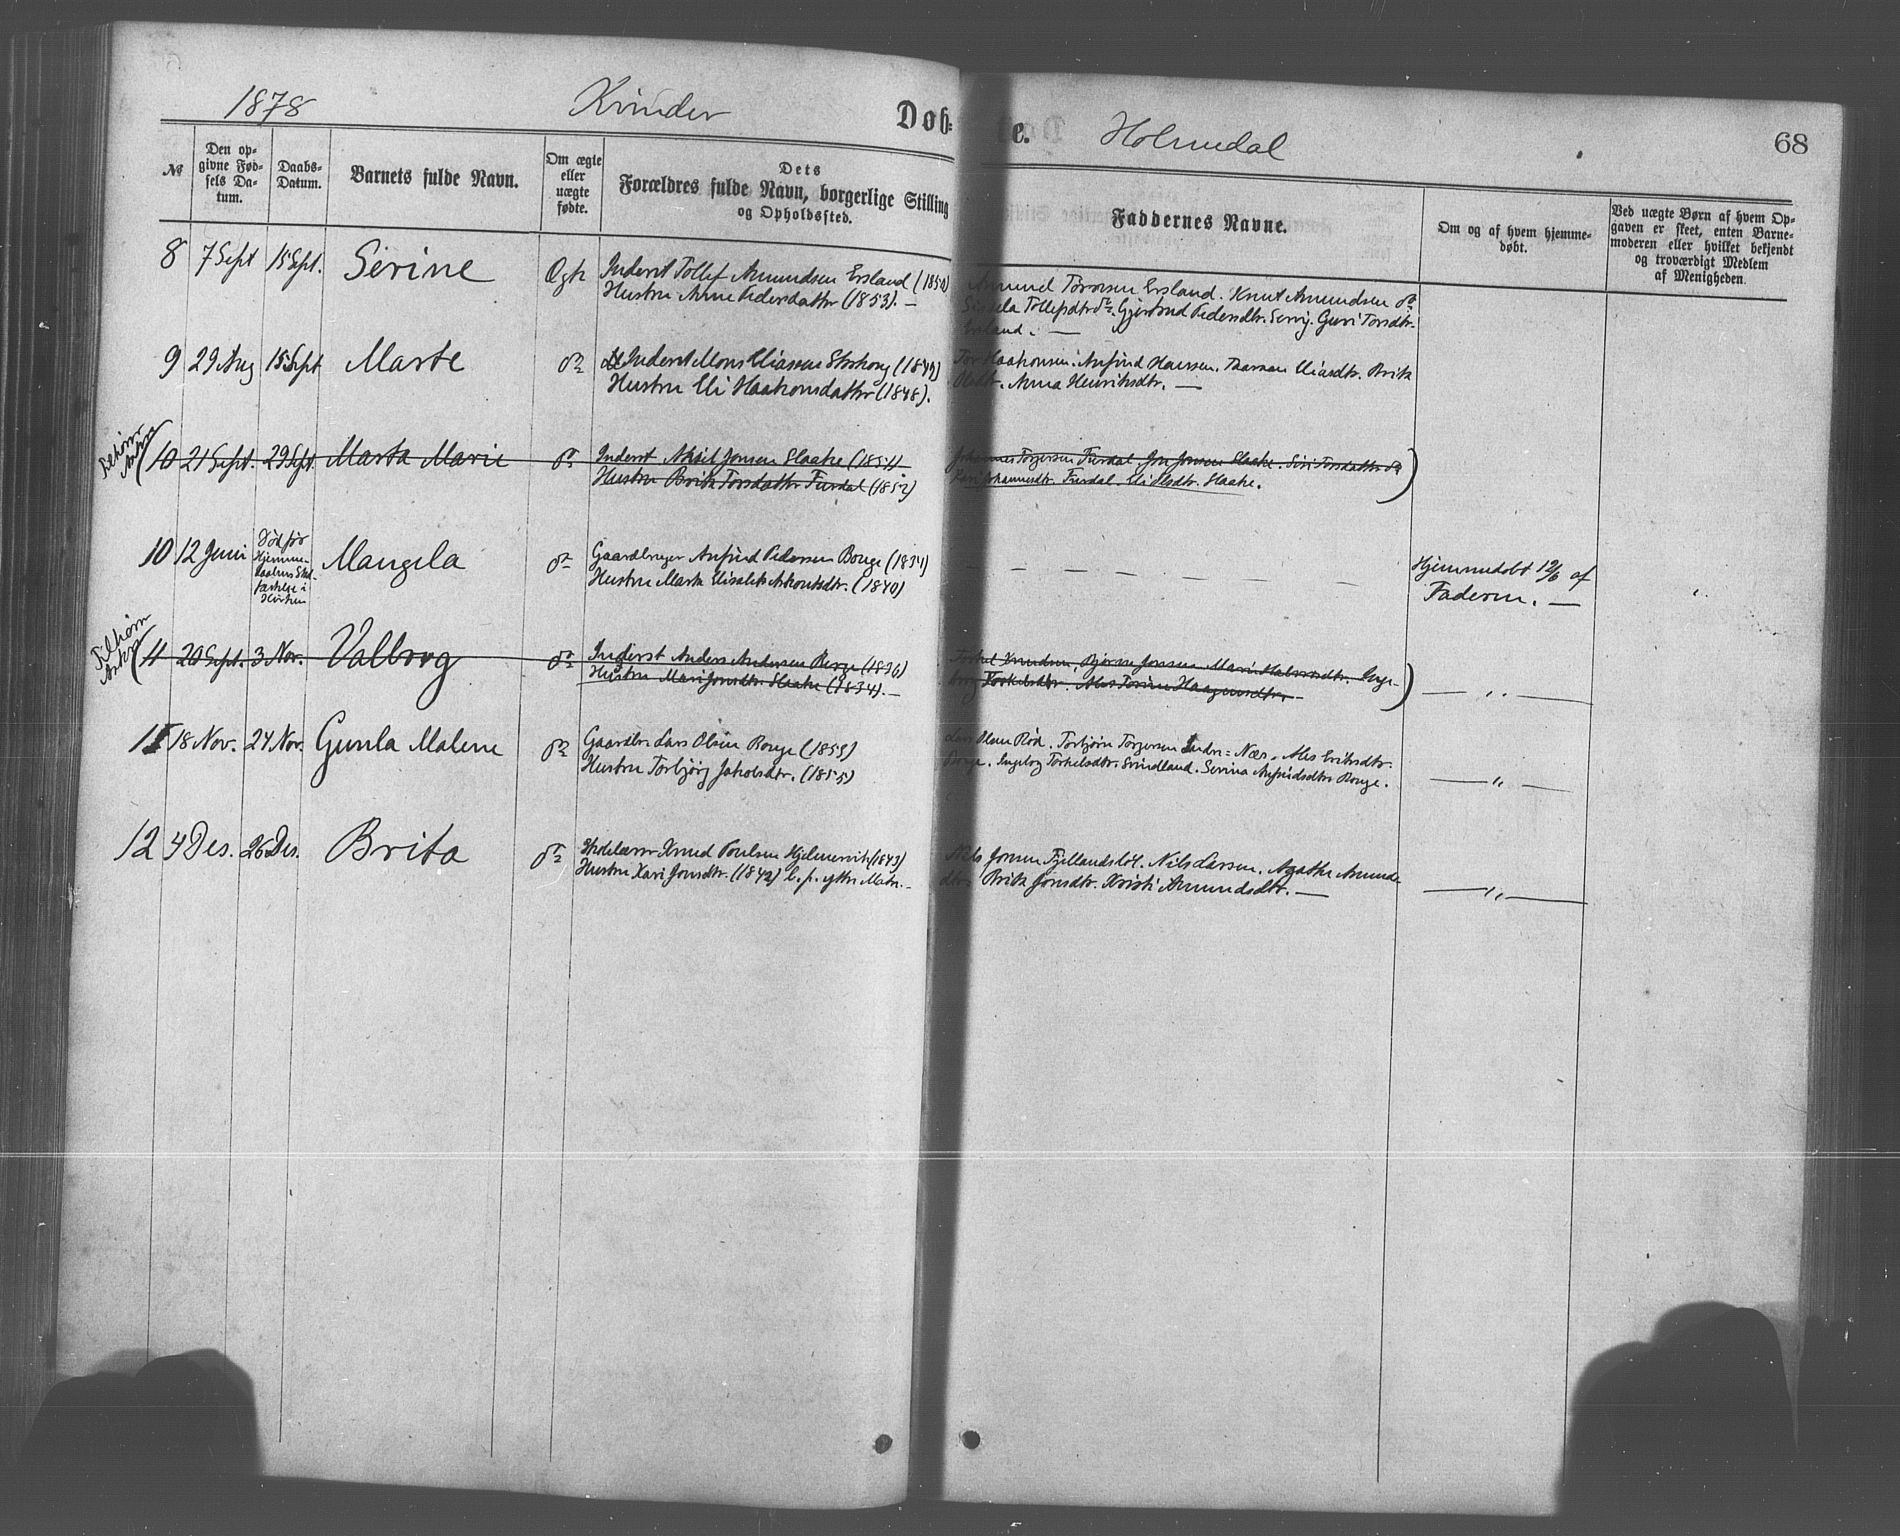 1878 Kvinder Døb= te. Holmedal 68
№
Den op-
givne Fød-
sels Da-
tum.
Daabs-
Datum.
Barnets fulde Navn.
Om ægte
eller
uægte
fødte.
Dets
Forældres fulde Navn, borgerlige Stilling
og Opholdssted.
Faddernes Navne.
Om og af hvem hjemme-
døbt.
Ved uægte Børn af hvem Op-
gaven er skeet, enten Barne-
moderen eller hvilket bekjendt
og troværdigt Medlem
af Menigheden.
8 7 Sept 15 Sept. Serine Ægte Inderst Tollef Amundsen Ersland (1850)
Hustru Anne Pedersdatter (1853). —
Amund Ersland. Knut Amundsen do
Tollefsdtr do. Gjertrud Pedersdtr. Guri Torsdtr.
Ersland. —
9 29 Aug 15 Sept Marte do Inderst Mons Eliassen (1849)
Hustru Eli Haakonsdatter (1848).
Tor Haakonsen. Anfind Hansen. Eliasdtr. Brita
Anna Henriksdtr. —
Tilhører
Askv
10 21 Sept. 29 Sept. Marta Marie do Inderst Aksel Jonsen Slaake (1851)
Hustru Brita Torsdatter Furdal (1852)
Johannes Torgersen Furdal Jon Jonsen Slaake. Siri Torsdatter do
Johannesdtr. Furdal. Slaake.
10 12 Juni Dødfør
Hjemme-
daabens Stad-
fæstelse i
Kirken
Mangela do Gaardbruger Anfind Pedersen Bouge (1834)
Hustru Marta Elisabet (1840)
— — — — — —
Hjemmedøbt 12/6 af
Faderen. —
Tilhører
Askv
11 20 Sept. 3 Nov. Valborg do Inderst Anders Andersen Berge (1836)
Hustru Mari Jonsdtr. Slaake (1834). —
Torkel Knudsen, Bjørn Jonsen Mari Inge-
borg Torkelsdtr. — „ —
11 18 Nov. 24 Nov. Gunla Malene do Gaardbr. Lars Olsen Bouge (1853)
Hustru Torbjørg Jakobsdtr. (1855)
Lars Olsen Rød. Torbjørn Torgersen Indre=Næs. Ales Eriksdtr.
Bouge. Ingeborg Torkelsdtr. Svindland. Serina Anfindsdtr Bouge.
— „ —
12 4 Des. 26 Des. Brita do Skolelærer Knud Poulsen Hjelmervik (1843)
Hustru Kari Jonsdtr. (1842) b. p. yttre
Nils Jonsen Nils Larsen. Agathe Amunds-
dtr Brita Jonsdtr. Kristi Amundsdtr. —
— „ —